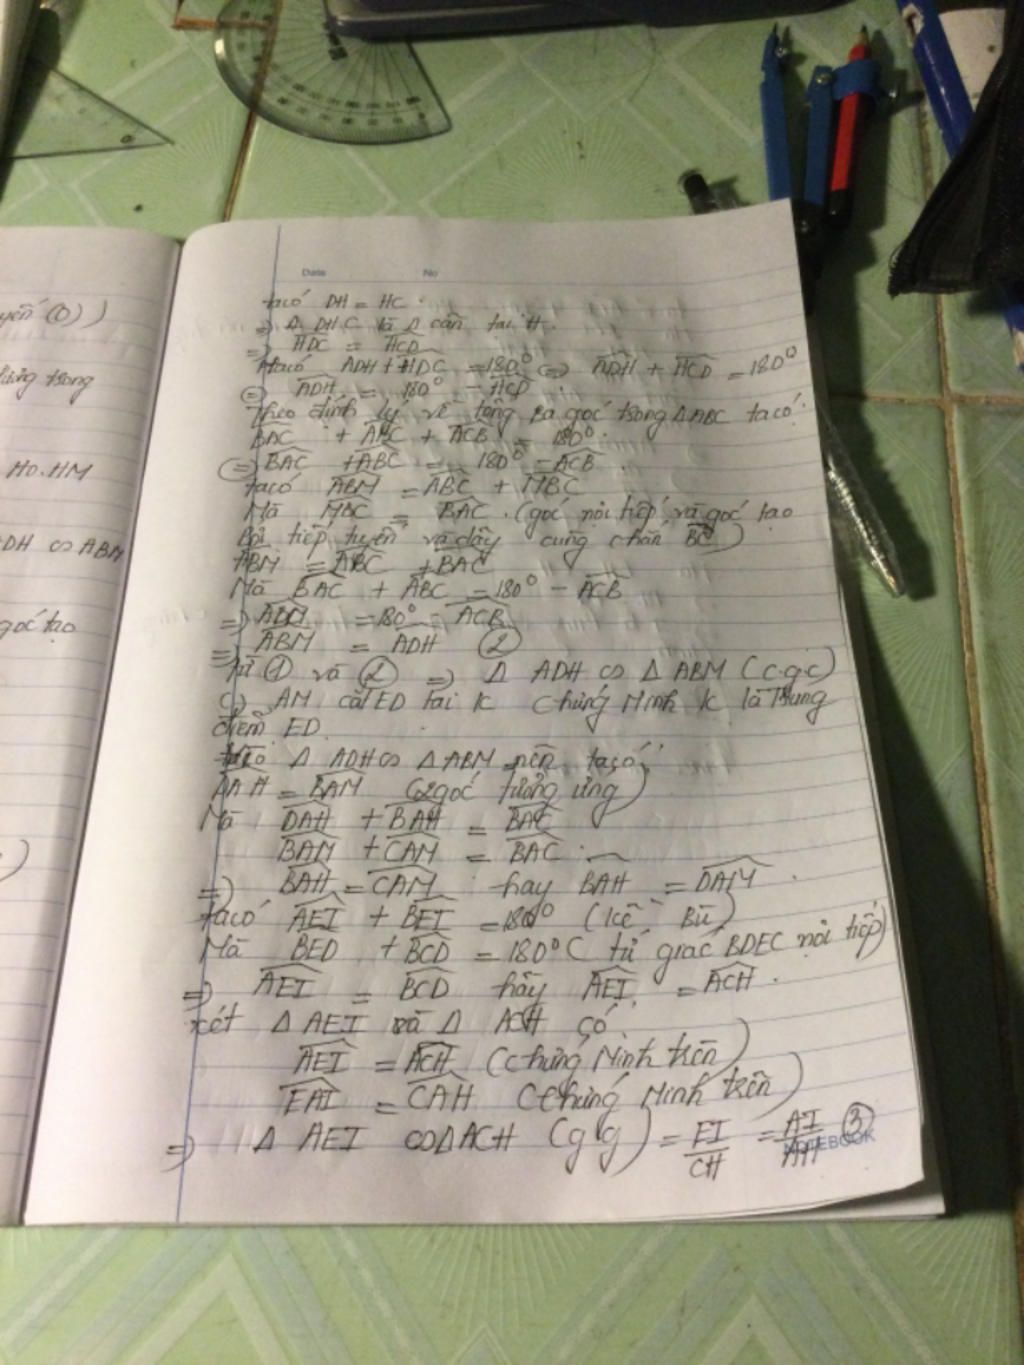 Date No
yến (O))
ta có DH = HC
=> Δ DHC là Δ cân tại H.
=> HDC = HCD
ta có ADH + HDC = 180° (=) ADH + HCD = 180°
trong
(=) ADH = 180° - HCD
Theo định lý về tổng ba góc trong ΔABC ta có:
BAC + ABC + ACB = 180°.
HO.HM
(=) BAC + ABC = 180° - ACB.
ta có ABM = ABC + MBC
Mà MBC = BAC (góc nội tiếp và góc tạo
bởi tiếp tuyến và dây cung chắn BC)
ADH ∽ ABM
ABM = ABC + BAC
Mà BAC + ABC = 180° - ACB
góc tạo
=) ABM = 180° - ACB
=) ABM = ADH (2)
Từ (1) và (2) =) Δ ADH ∽ Δ ABM (c.g.c)
C) AM cắt ED tại K chứng Minh K là Trung
điểm ED.
Δ ADH ∽ Δ ABM nên ta có:
DAH = BAM (2 góc tương ứng)
Mà DAH + BAH = BAC
BAM + CAM = BAC.
=) BAH = CAM hay BAH = DAM.
ta có AEI + BEI = 180° (kề Bù)
Mà BED + BCD = 180° ( tứ giác BDEC nội tiếp)
=) AEI = BCD hãy AEI = ACH.
xét Δ AEI và Δ ACH có
AEI = ACH (chứng Minh trên)
EAI = CAH (chứng Minh trên)
=) Δ AEI ∽ Δ ACH (g g) = EI/CH = AI/AH (3)
NOTEBOOK